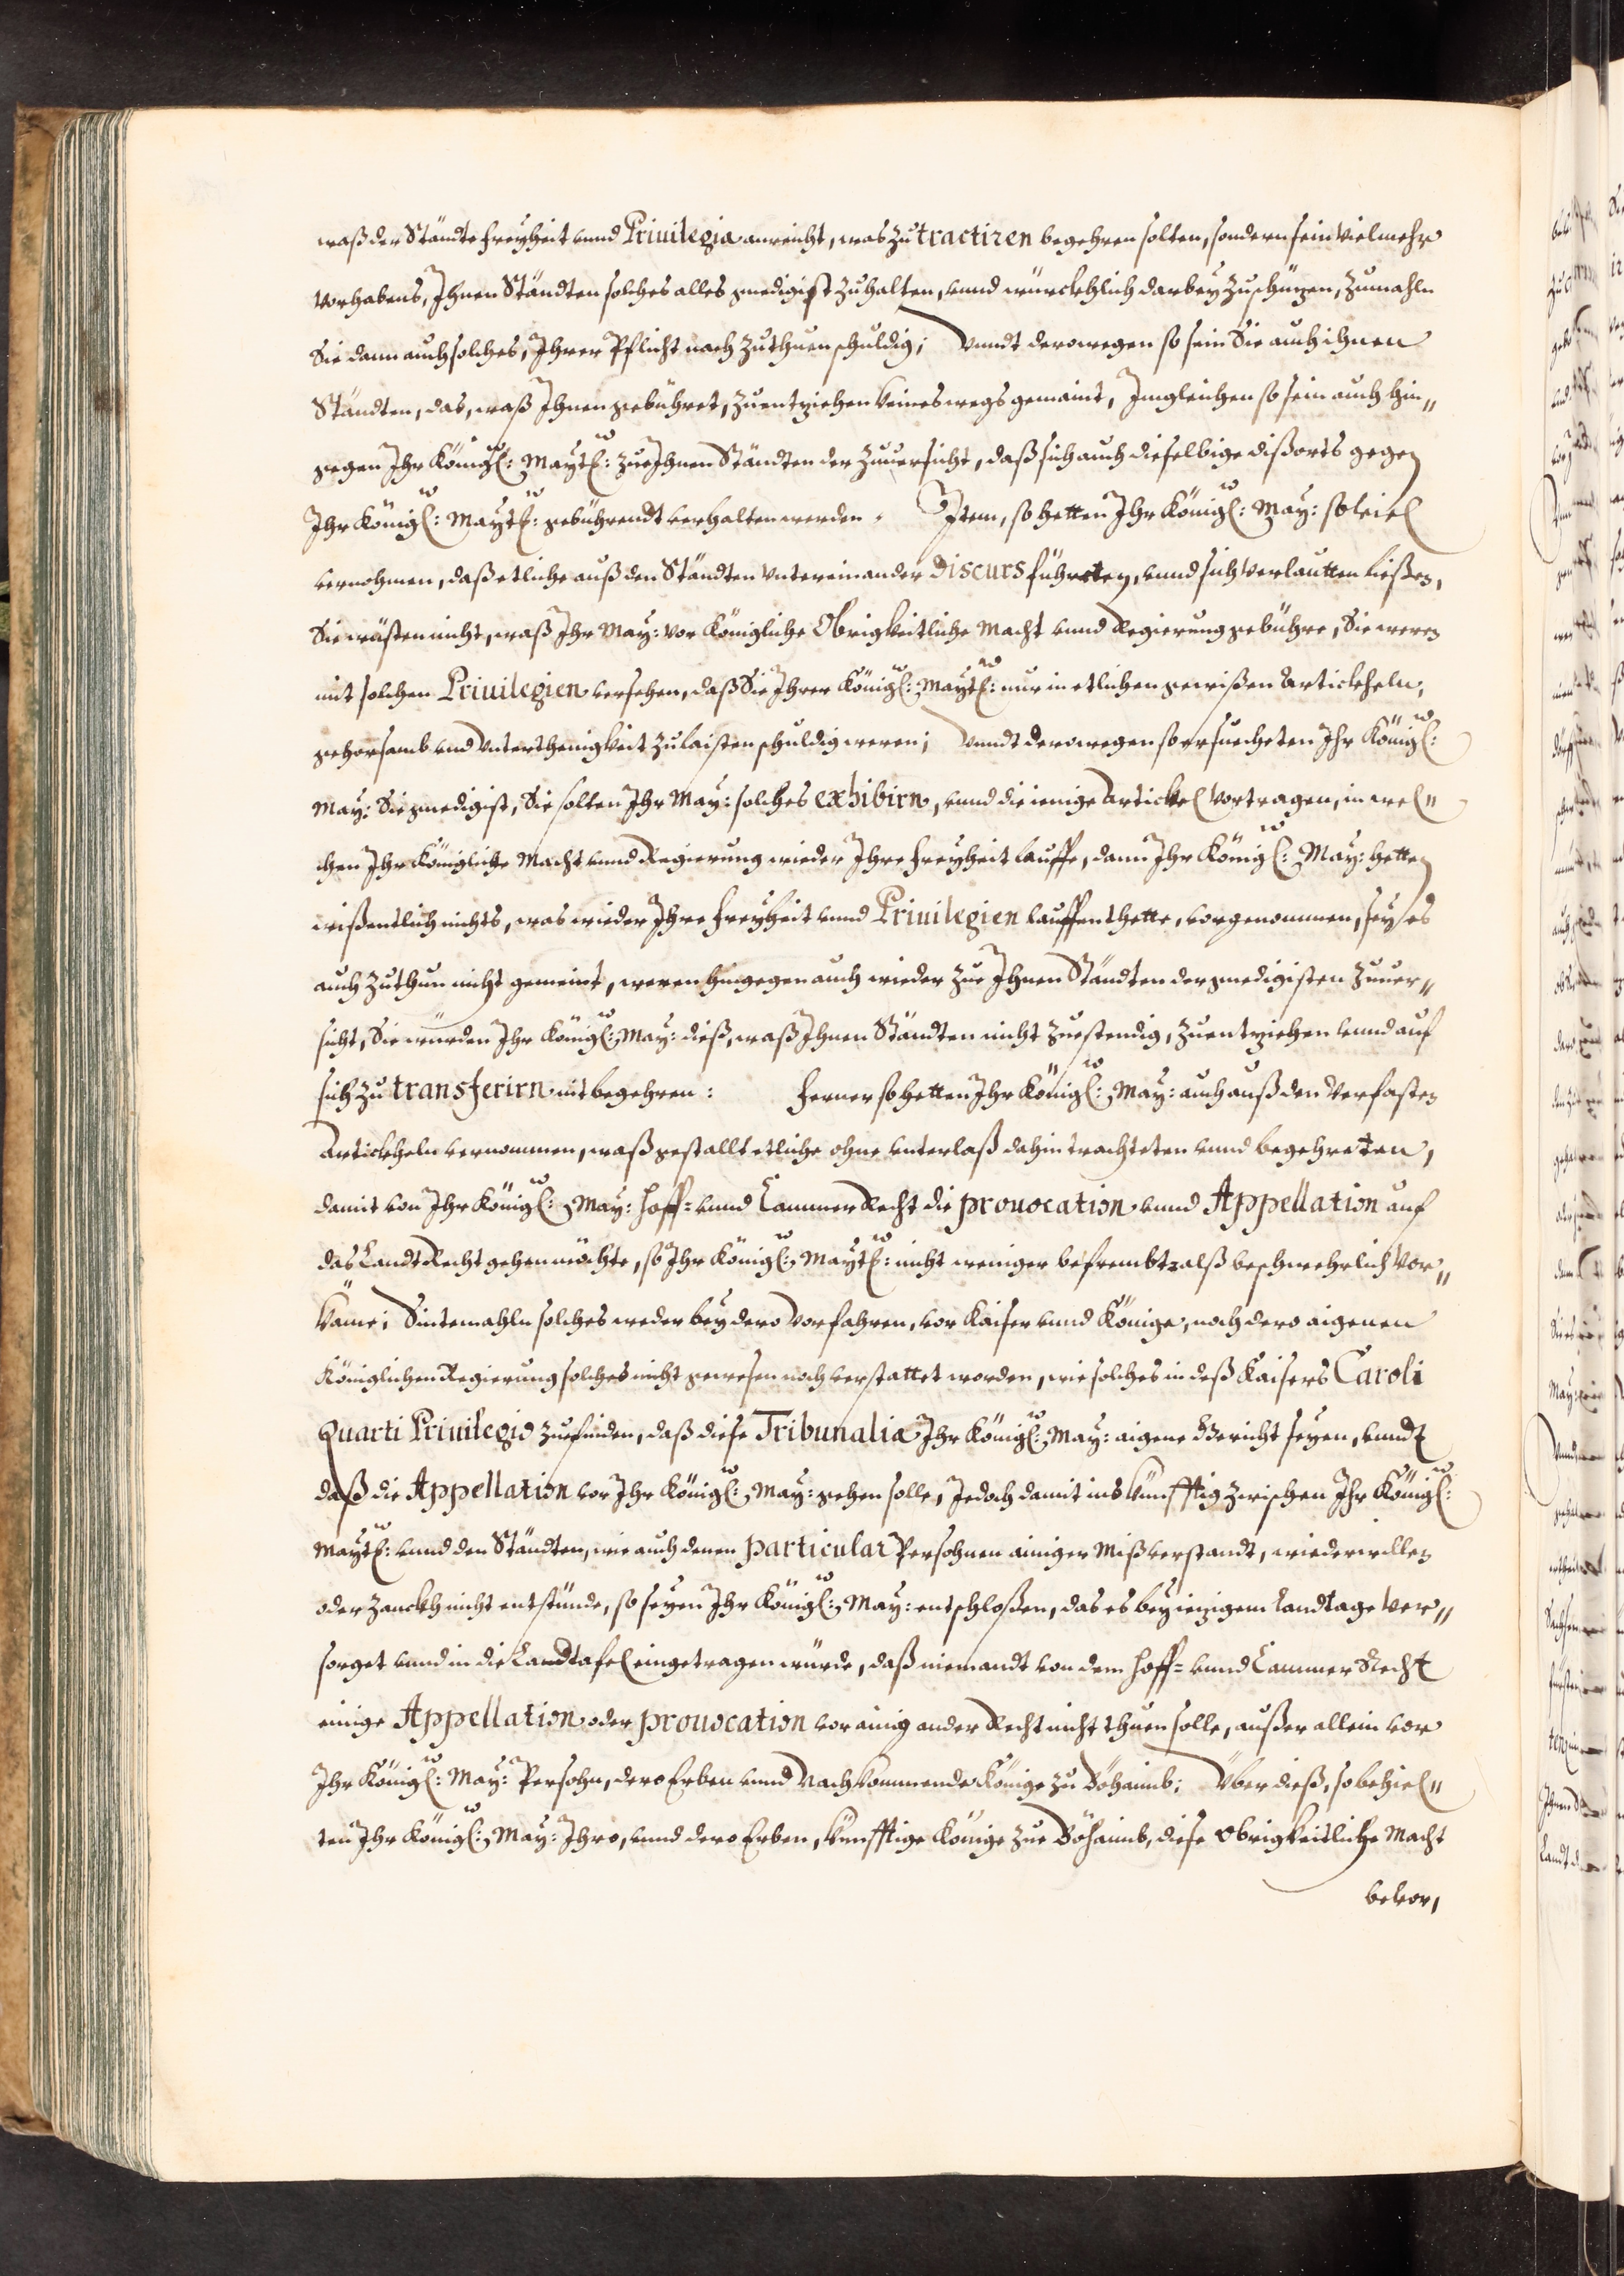 waß der Ständte freyheit vnnd Priuilegia anreicht, was zu tractiren begehren solten, sondern sein vielmehr
vorhabens, Ihnen Ständten solches alles gnedigist zuhalten, vnnd würckhlich darbey zuschüzen, zumahln
Sie dann auch solches, Ihrer Pflicht nach zuthuen schuldig; Vnndt derowegen so sein Sie auch ihnen
Ständten, das, waß Ihnen gebühret, zuentziehen keineswegs gemaint, Imgleichen so sein auch hin„
gegen Ihr Königl: Maytt: zue Ihnen Ständten der zuuersicht, daß sich auch dieselbige dißorts gegen
Ihr Königl: Maytt: gebührendt verhalten werden. Item, so hetten Ihr Königl: May: so viel
vernohmen, daß etliche auß den Ständten vntereinander discurs führeten, vnnd sich verlautten ließen,
Sie wüsten nicht, waß Ihr May: vor Königliche Obrigkeitliche Macht vnnd Regierung gebühre, Sie weren
mit solchen Priuilegien versehen, daß Sie Ihrer Königl: Maytt: nur in etlichen gewißen Artickheln,
gehorsamb vnd vnterthenigkeit zulaisten schuldig weren; Vnndt derowegen so ersuecheten Ihr Königl:
May: Sie gnedigist, Sie solten Ihr May: solches exhibirn, vnnd die ienige Artickel vortragen, in wel„
chen Ihr Königliche Macht vnnd Regierung wieder Ihre freyheit lauffe, dann Ihr Königl: May: hetten
wißentlich nichts, was wieder Ihre freyheit vnnd Priuilegien lauffen thette, vorgenommen, sey es
auch zuthun nicht gemeint, weren hingegen auch wieder zue Ihnen Ständten der gnedigisten zuuer„
sicht, Sie würden Ihr Königl: May: dieß, waß Ihnen Ständten nicht zuestendig, zuentziehen vnnd auf
sich zu transferirn nit begehren: Ferner so hetten Ihr Königl: May: auch auß den verfasten
Artickheln vernommen, waß gestallt etliche ohne vnterlaß dahin trachteten vnnd begehreten,
damit von Ihr Königl: May: Hoff= vnnd Cammer Recht die prouocation vnnd Appellation auf
das Landt Recht gehen möchte, so Ihr Königl: Maytt: nicht weniger befrembt, alß beschwehrlich vor„
käme; Sintemahln solches weder bey dero Vorfahren, vor Kaiser vnnd Könige, noch dero aigenen
Königlichen Regierung solches nicht gewesen noch verstattet worden, wie solches in deß Kaisers Caroli
Quarti Priuilegio zuefinden, daß diese Tribunalia Ihr Königl: May: aigene Gericht seyen, vnndt
daß die Appellation vor Ihr Königl: May: gehen solle, Jedoch damit ins künfftig zwischen Ihr Königl:
Maytt: vnnd den Ständten, wie auch denen particular Persohnen ainiger mißverstandt, wiederwillen
oder zanckh nicht entstünde, so seyen Ihr Königl: May: entschloßen, das es bey iezigem Landtage ver„
sorget vnnd in die Landtafel eingetragen würde, daß niemandt von dem Hoff= vnnd Cammer Recht
einige Appellation oder prouocation vor ainig ander Recht nicht thuen solle, außer allein vor
Ihr Königl: May: Persohn, dero Erben vnnd Nachkommende Könige zu Böhaimb; Über dieß, so behiel„
ten Ihr Königl: May: Ihro, vnnd dero Erben, künfftige Könige zue Böhaimb, diese Obrigkeitliche Macht
beuor,